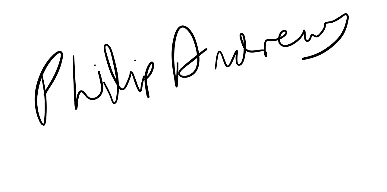 Philip Andrews